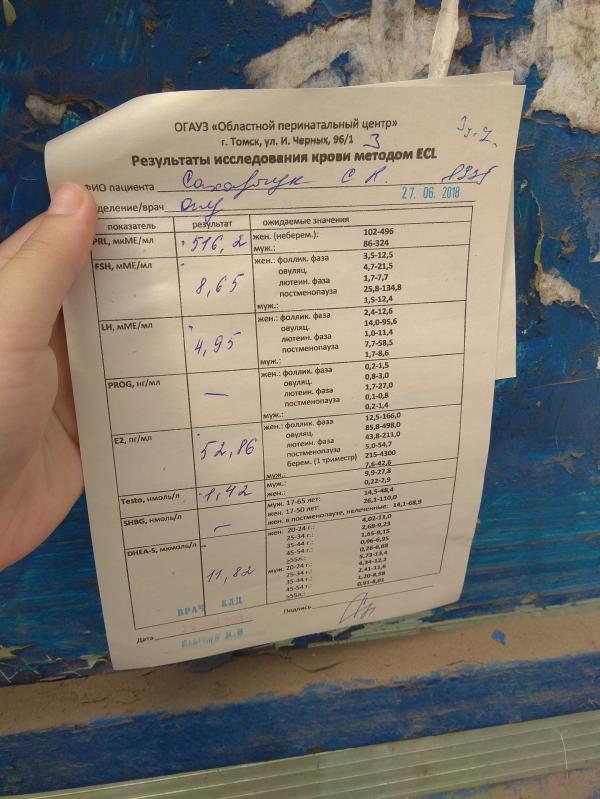 ОГАУЗ «Областной перинатальный центр»
г. Томск, ул. И. Черных, 96/1
3
Результаты исследования крови методом ECL
ФИО пациента С Н.
27. 06. 2018
деление/врач
показатель результат ожидаемые значения
PRL, мкМЕ/мл 516,2 жен. (неберем.): 102-496
муж.: 86-324
FSH, мМЕ/мл 8,65 жен.: фоллик. фаза 3,5-12,5
овуляц. 4,7-21,5
лютеин. фаза 1,7-7,7
постменопауза 25,8-134,8
муж.: 1,5-12,4
LH, мМЕ/мл 4,95 жен.: фоллик. фаза 2,4-12,6
овуляц. 14,0-95,6
лютеин. фаза 1,0-11,4
постменопауза 7,7-58,5
муж.: 1,7-8,6
PROG, нг/мл — жен.: фоллик. фаза 0,2-1,5
овуляц. 0,8-3,0
лютеин. фаза 1,7-27,0
постменопауза 0,1-0,8
муж.: 0,2-1,4
E2, пг/мл 52,86 жен.: фоллик. фаза 12,5-166,0
овуляц. 85,8-498,0
лютеин. фаза 43,8-211,0
постменопауза 5,0-54,7
берем. (1 триместр) 215-4300
муж.: 7,6-42,6
Testo, нмоль/л 1,42 муж.: 9,9-27,8
жен.: 0,22-2,9
SHBG, нмоль/л — муж. 17-65 лет: 14,5-48,4
жен. 17-50 лет: 26,1-110,0
жен. в постменопаузе, нелеченные: 14,1-68,9
DHEA-S, мкмоль/л 11,82 жен. 20-24 г.: 4,02-11,0
25-34 г.: 2,68-9,23
35-44 г.: 1,65-9,15
45-54 г.: 0,96-6,95
≥55л.: 0,26-6,68
муж. 20-24 г.: 5,73-13,4
25-34 г.: 4,34-12,2
35-44 г.: 2,41-11,6
45-54 г.: 1,20-8,98
≥55л.: 0,91-6,01
ВРАЧ КЛД
Дата Подпись